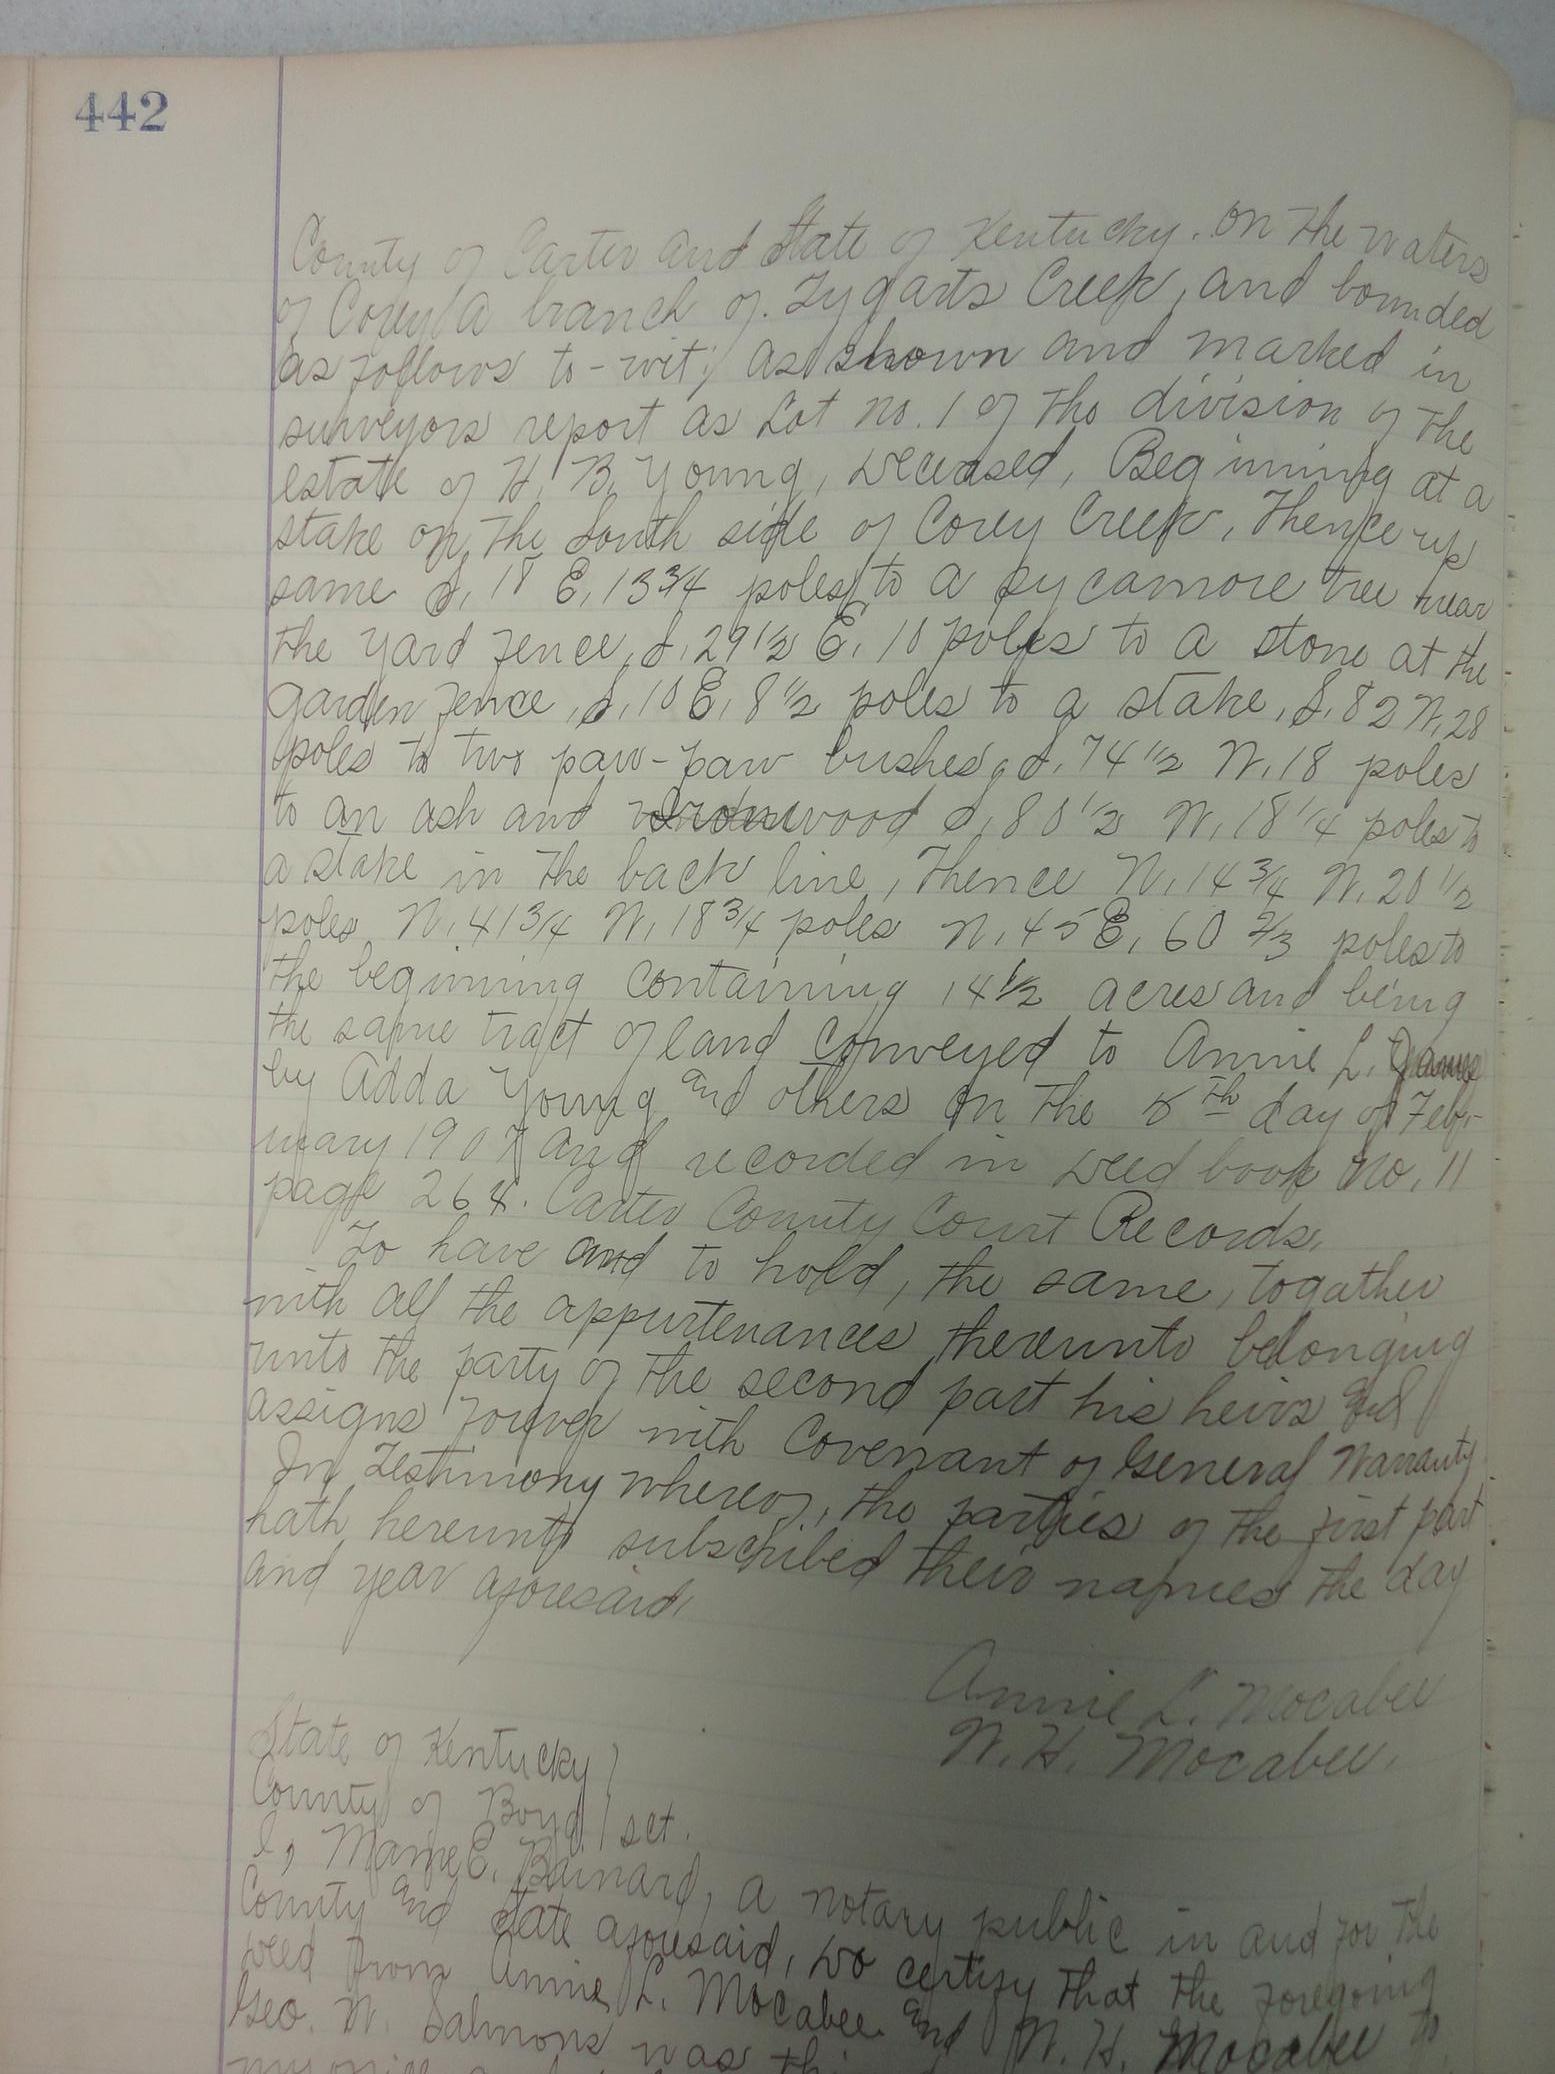 442
County of Carter and State of Kentucky. On the waters
of Corey a branch of. Tygarts Creek, and bounded
as follows to-wit; as shown and marked in
surveyors report as Lot no. 1 of the division of the
estate of H. B. Young, deceased, Beginning at a
stake on the South side of Corey Creek, Thence up
same S, 18 E, 13 3/4 poles to a sycamore tree near
the yard fence, S, 29 1/2 E, 10 poles to a stone at the
garden fence, S, 10 E, 8 1/2 poles to a stake, S, 82 W, 28
poles to two paw-paw bushes, S, 74 1/2 W, 18 poles
to an ash and Ironwood S, 80 1/2 W, 18 1/4 poles to
a stake in the back line, Thence N, 14 3/4 W, 20 1/2
poles N, 41 3/4 W, 18 3/4 poles N, 45 E, 60 2/3 poles to
the beginning containing 14 1/2 acres and being
the same tract of land conveyed to Annie L.
by Adda Young and others on the th day of Feb-
ruary 1907 and recorded in deed book No, 11
page 264. Carter County Court Records,
To have and to hold, the same, togather
with all the appurtenances thereunto belonging
unto the party of the second part his heirs and
assigns forever with Covenant of General Warranty
In Testimony whereof, the parties of the first part
hath hereunto subscribed their names the day
and year aforesaid,
Annie L. Mocabee
W. H. Mocabee.
State of Kentucky )
County of Boyd ) sct.
I, Mame E. Barnard, a notary public in and for the
County and State aforesaid, do certify that the foregoing
deed from Annie L. Mocabee and W. H. Mocabee to
Geo. W. Salmons was
my office